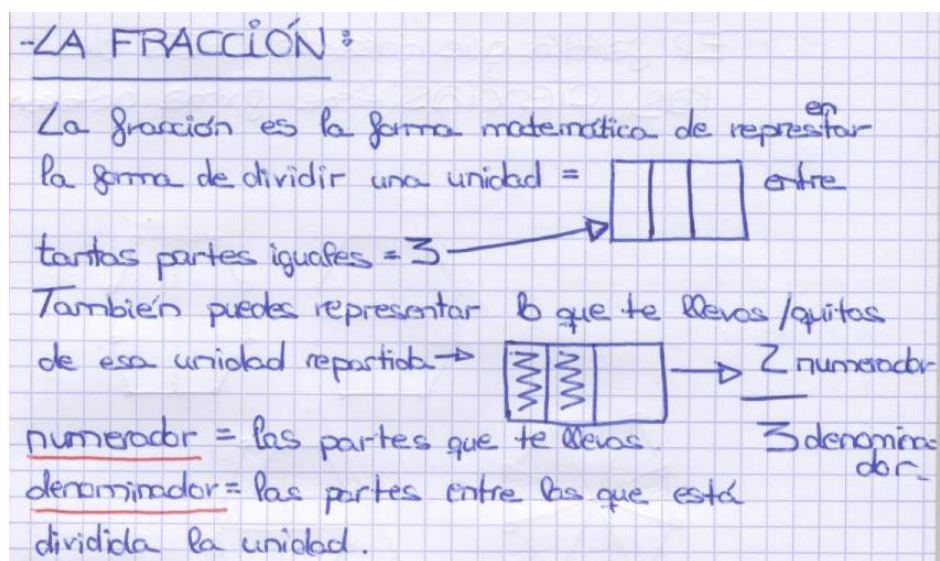 -LA FRACCIÓN:
La fracción es la forma matemática de representar
la forma de dividir una unidad = entre
tantas partes iguales = 3
También puedes representar lo que te llevas/quitas
de esa unidad repartida → → 2 numerador
numerador = las partes que te llevas. 3 denomina
dor.
denominador = las partes entre las que está
dividida la unidad.